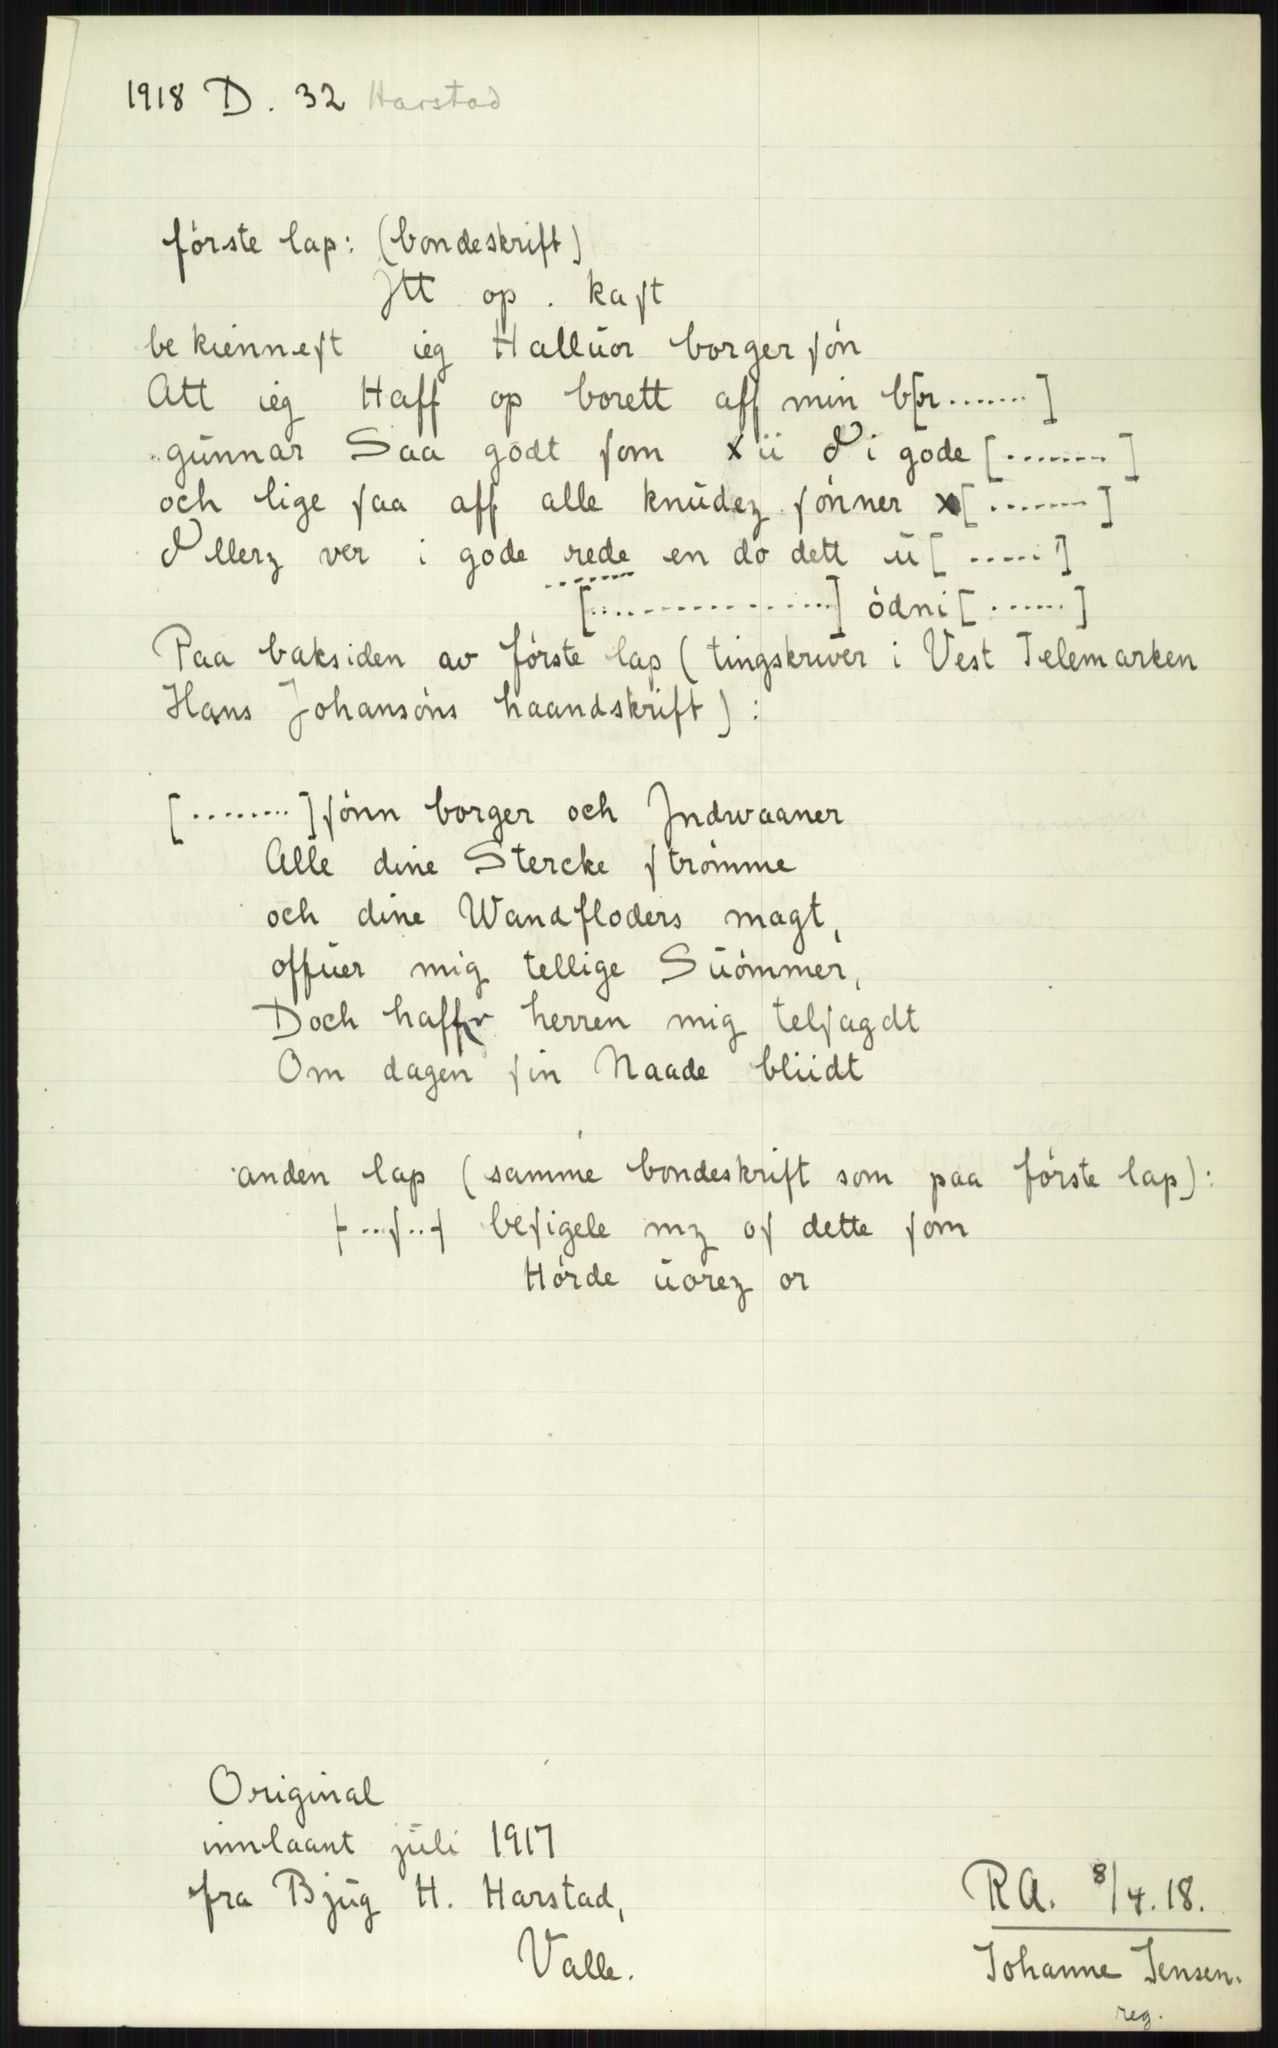 1918 D. 32 Harstad
förste lap: (bondeskrift)
Jtt op . kaſt
be kienneſt ieg Hallŭor borger ſön
Att ieg Haff op borett aff min b[or ....... ]
gŭnnar Saa godt ſom x ii d i gode [ ....... ]
och lige ſaa aff alle knŭdez ſönner x [ ....... ]
ellerz ver i gode rede en do dett ŭ [ ..... ]
[ ................. ] ödni [ ...... ]
Paa baksiden av förste lap (tingskriver i Vest Telemarken
Hans Johansöns haandskrift) :
[ ........ ] ſönn borger och Jndwaaner
Alle dine Stercke ſtrömme
och dine Wandfloders magt,
offŭer mig tellige Sŭömmer,
Doch haffr herren mig telſagdt
Om dagen ſin Naade bliidt
anden lap (samme bondeskrift som paa förste lap):
[ ..ſ.. ] beſigele mz oſ dette ſom
Hörde ŭorez or
Original
innlaant jŭli 1917
fra Bjŭg H. Harstad,
Valle.
RA. 8/4.18.
Johanne Jensen.
reg.